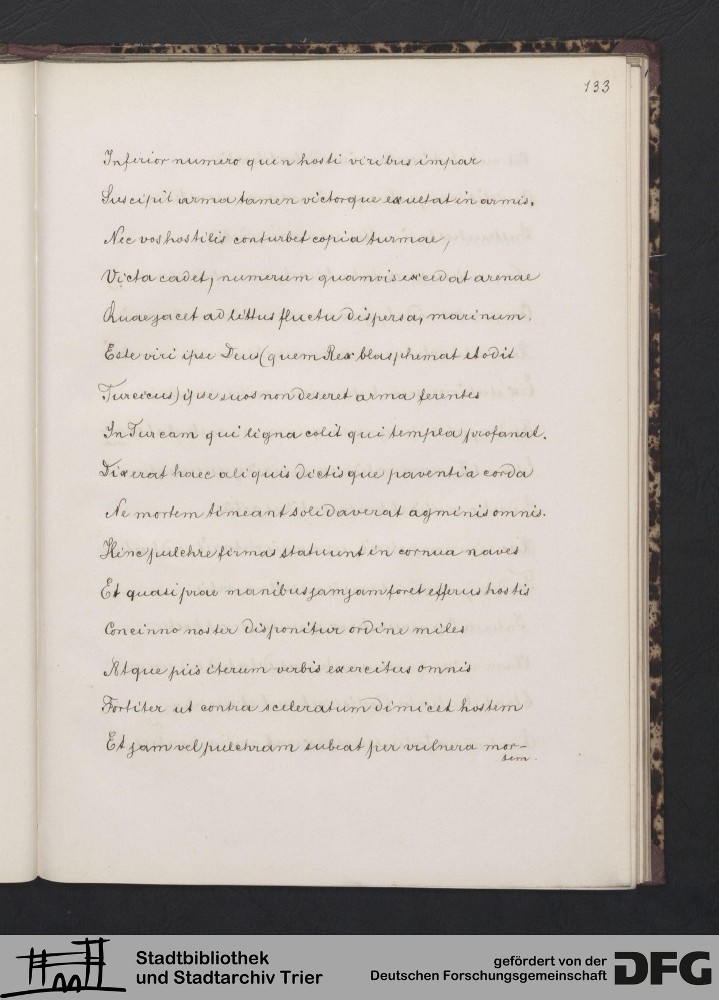 133
Inferior numero quen hosti viribus impar
Suscipit arma tamen victorque exultat in armis.
Nec vos hostilis conturbet copia turmae,
Victa cadet, numerum quamvis excedat arenae
Quae jacet ad littus fluctu dispersa, marinum.
Este viri ipse Deus (quem Rex blasphemat et odit
Turcicus) ipse suos non deseret arma ferentes
In Turcam qui ligna colit qui templa profanat.
Dixerat haec aliquis dictisque paventia corda
Ne mortem timeant solidaverat agminis omnis.
Hinc pulchre firmas statuunt in cornua naves
Et quasi prae manibus jam jam foret efferus hostis
Concinno noster disponitur ordine miles
Atque piis iterum verbis exercitus omnis
Fortiter ut contra sceleratum dimicet hostem
Et jam vel pulchram subeat per vulnera mor-
tem.
Stadtbibliothek
und Stadtarchiv Trier
gefördert von der
Deutschen Forschungsgemeinschaft
DFG